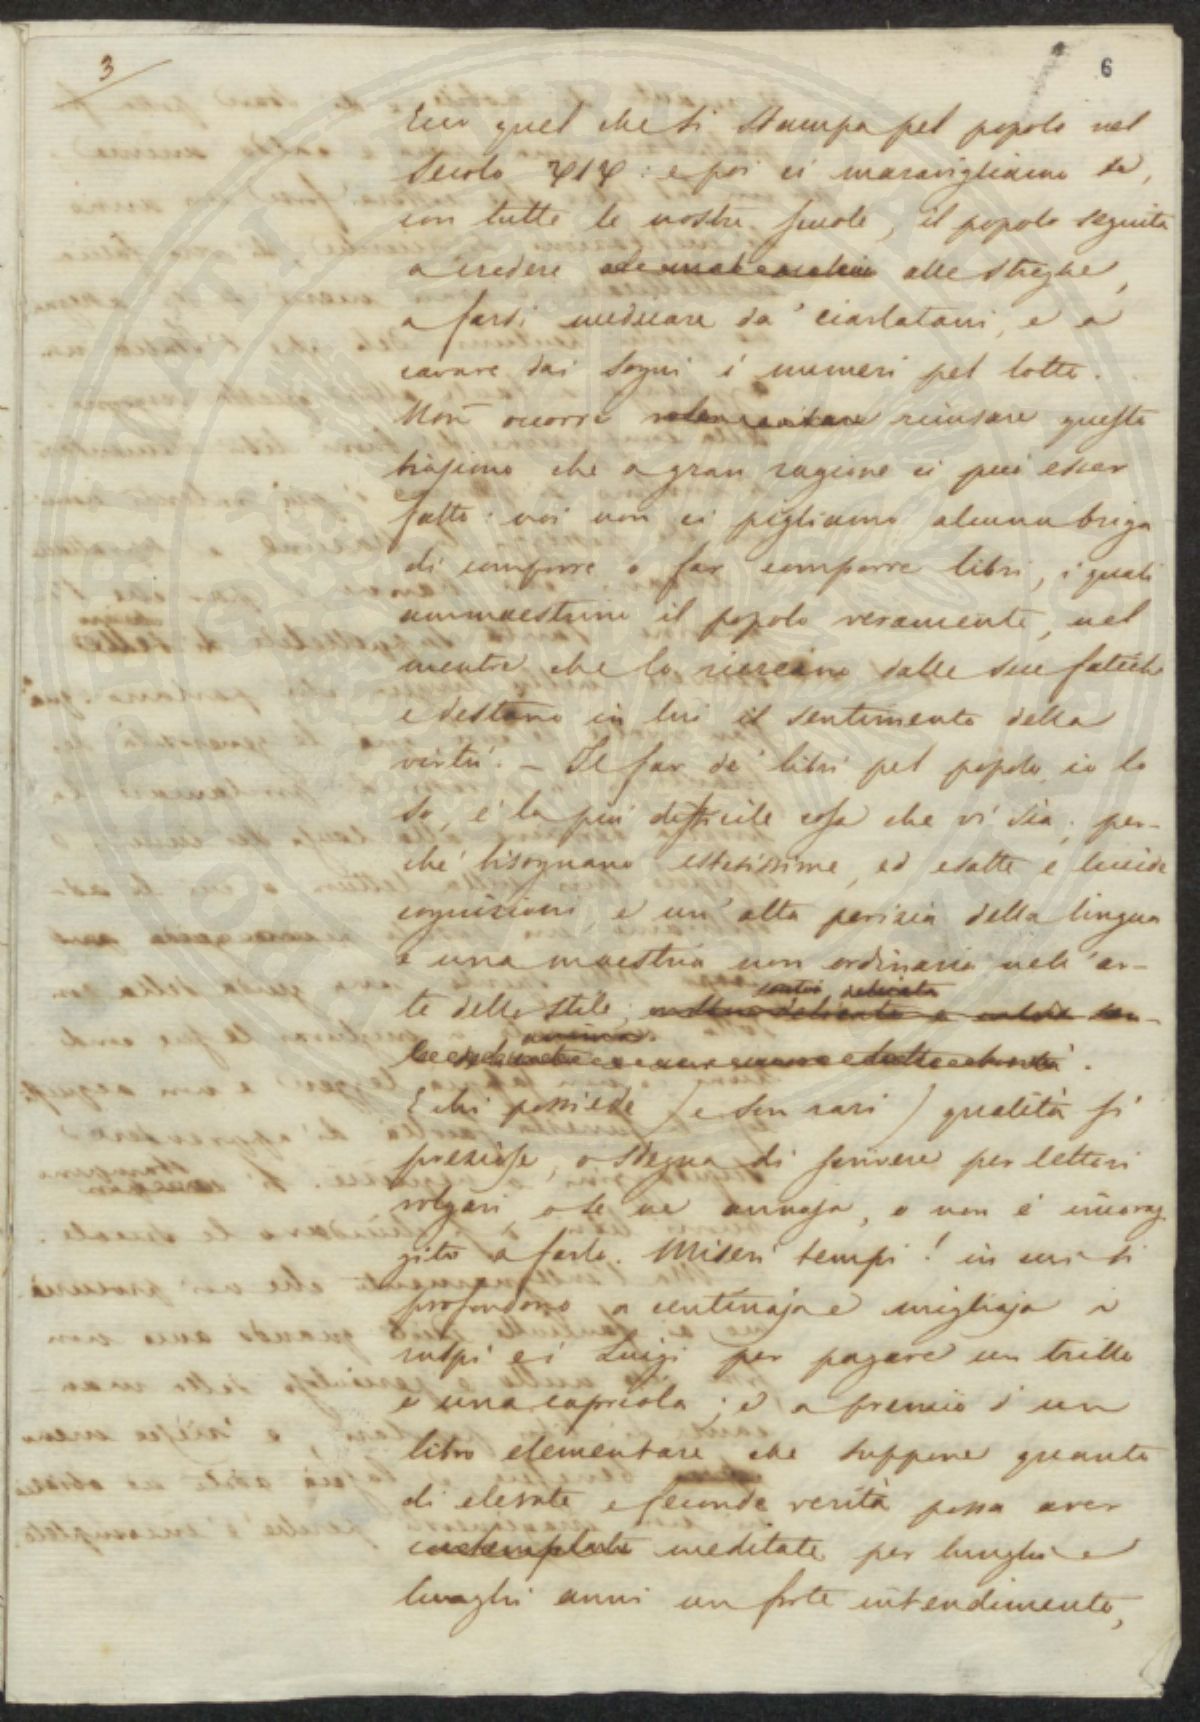 3
6
Ecco quel che si stampa pel popolo nel
secolo XIX: e poi ci maravigliamo se,
con tutte le nostre scuole, il popolo seguita
a credere alle streghe,
a farsi medicare da' ciarlatani, e a
cavare dai sogni i numeri pel lotto.
Non occorre ricusare questo
biasimo che a gran ragione ci può esser
fatto: noi non ci pigliamo alcuna briga
di comporre o far comporre libri, i quali
ammaestrino il popolo veramente, nel
mentre che lo ricreano dalle sue fatiche
e destano in lui il sentimento della
virtù. – Il far de' libri pel popolo, io lo
so, è la più difficile cosa che vi sia; per-
chè bisognano estesissime, ed esatte e lucide
cognizioni, e un' alta perizia della lingua
e una maestria non ordinaria nell'ar-
te dello stile;
E chi possiede (e son rari) qualità sì
preziose, o sdegna di scrivere per lettori
volgari, o se ne annoja, o non è incorag
gito a farlo. Miseri tempi! in cui si
profondono a centinaja e migliaja i
ruspi e i Luigi per pagare un trillo
e una capriola; e a premio d'un
libro elementare che suppone quanto
di elevate e feconde verità possa aver
contemplate meditate per lunghi e
lunghi anni un forte intendimento,